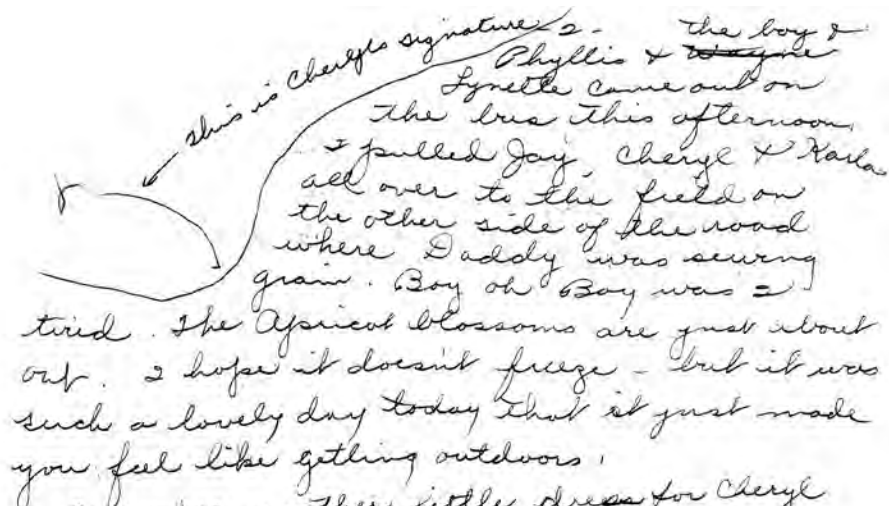 This is Cheryls signature
- 2 -
the boy &
Phyllis & Wayne
Lynette came out on
the bus this afternoon.
I pulled Jay, Cheryl & Karla
all over to the field on
the other side of the road
where Daddy was sewing
grain. Boy oh Boy was I
tired. The Apricot blossoms are just about
out. I hope it doesn't freeze - but it was
such a lovely day today that it just made
you feel like getting outdoors.
little dress for Cheryl